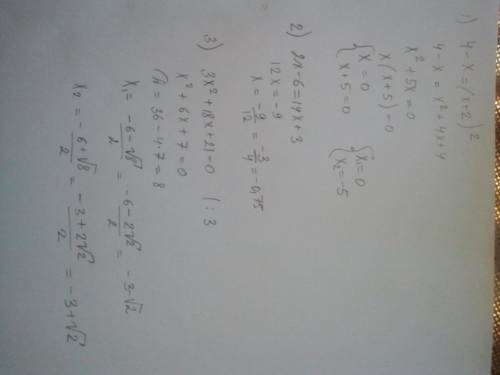 1) 4-x=(x+2)²
4-x=x²+4x+4
x²+5x=0
x(x+5)=0
{x=0 {x₁=0
{x+5=0 {x₂=-5
2) 2x-6=14x+3
12x=-9
x=-9/12=-3/4=-0,75
3) 3x²+18x+21=0 |:3
x²+6x+7=0
D=36-4·7=8
x₁=(-6-√8)/2=(-6-2√2)/2=-3-√2
x₂=(-6+√8)/2=(-3+2√2)/2=-3+√2